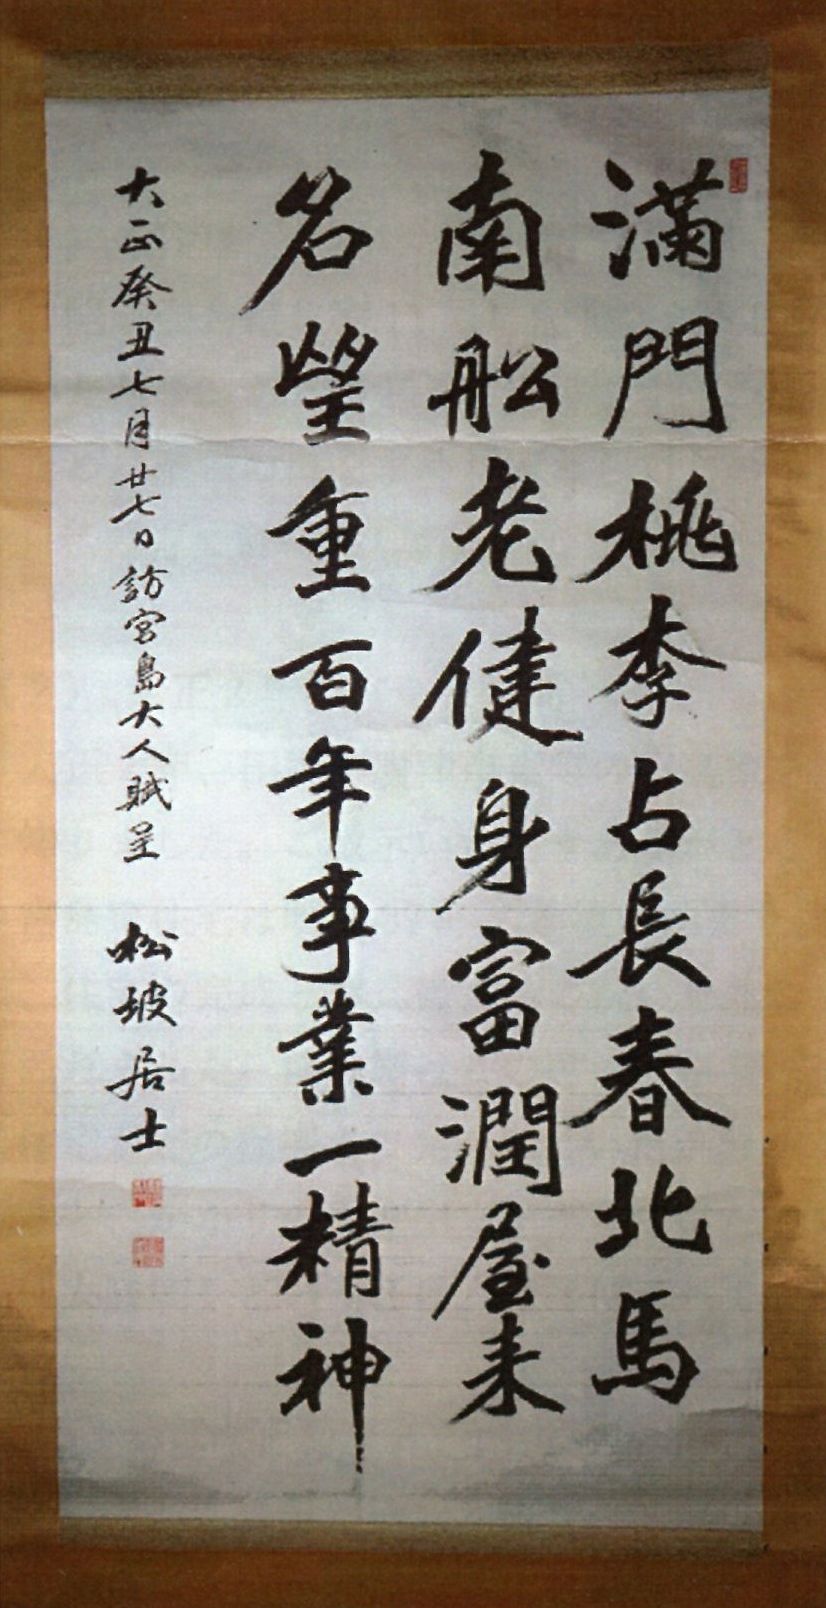 滿門桃李占長春北馬
南船老健身富潤屋来
名望重百年事業一精神
大正癸丑七月廿七日訪宮島大人賦呈 松坡居士